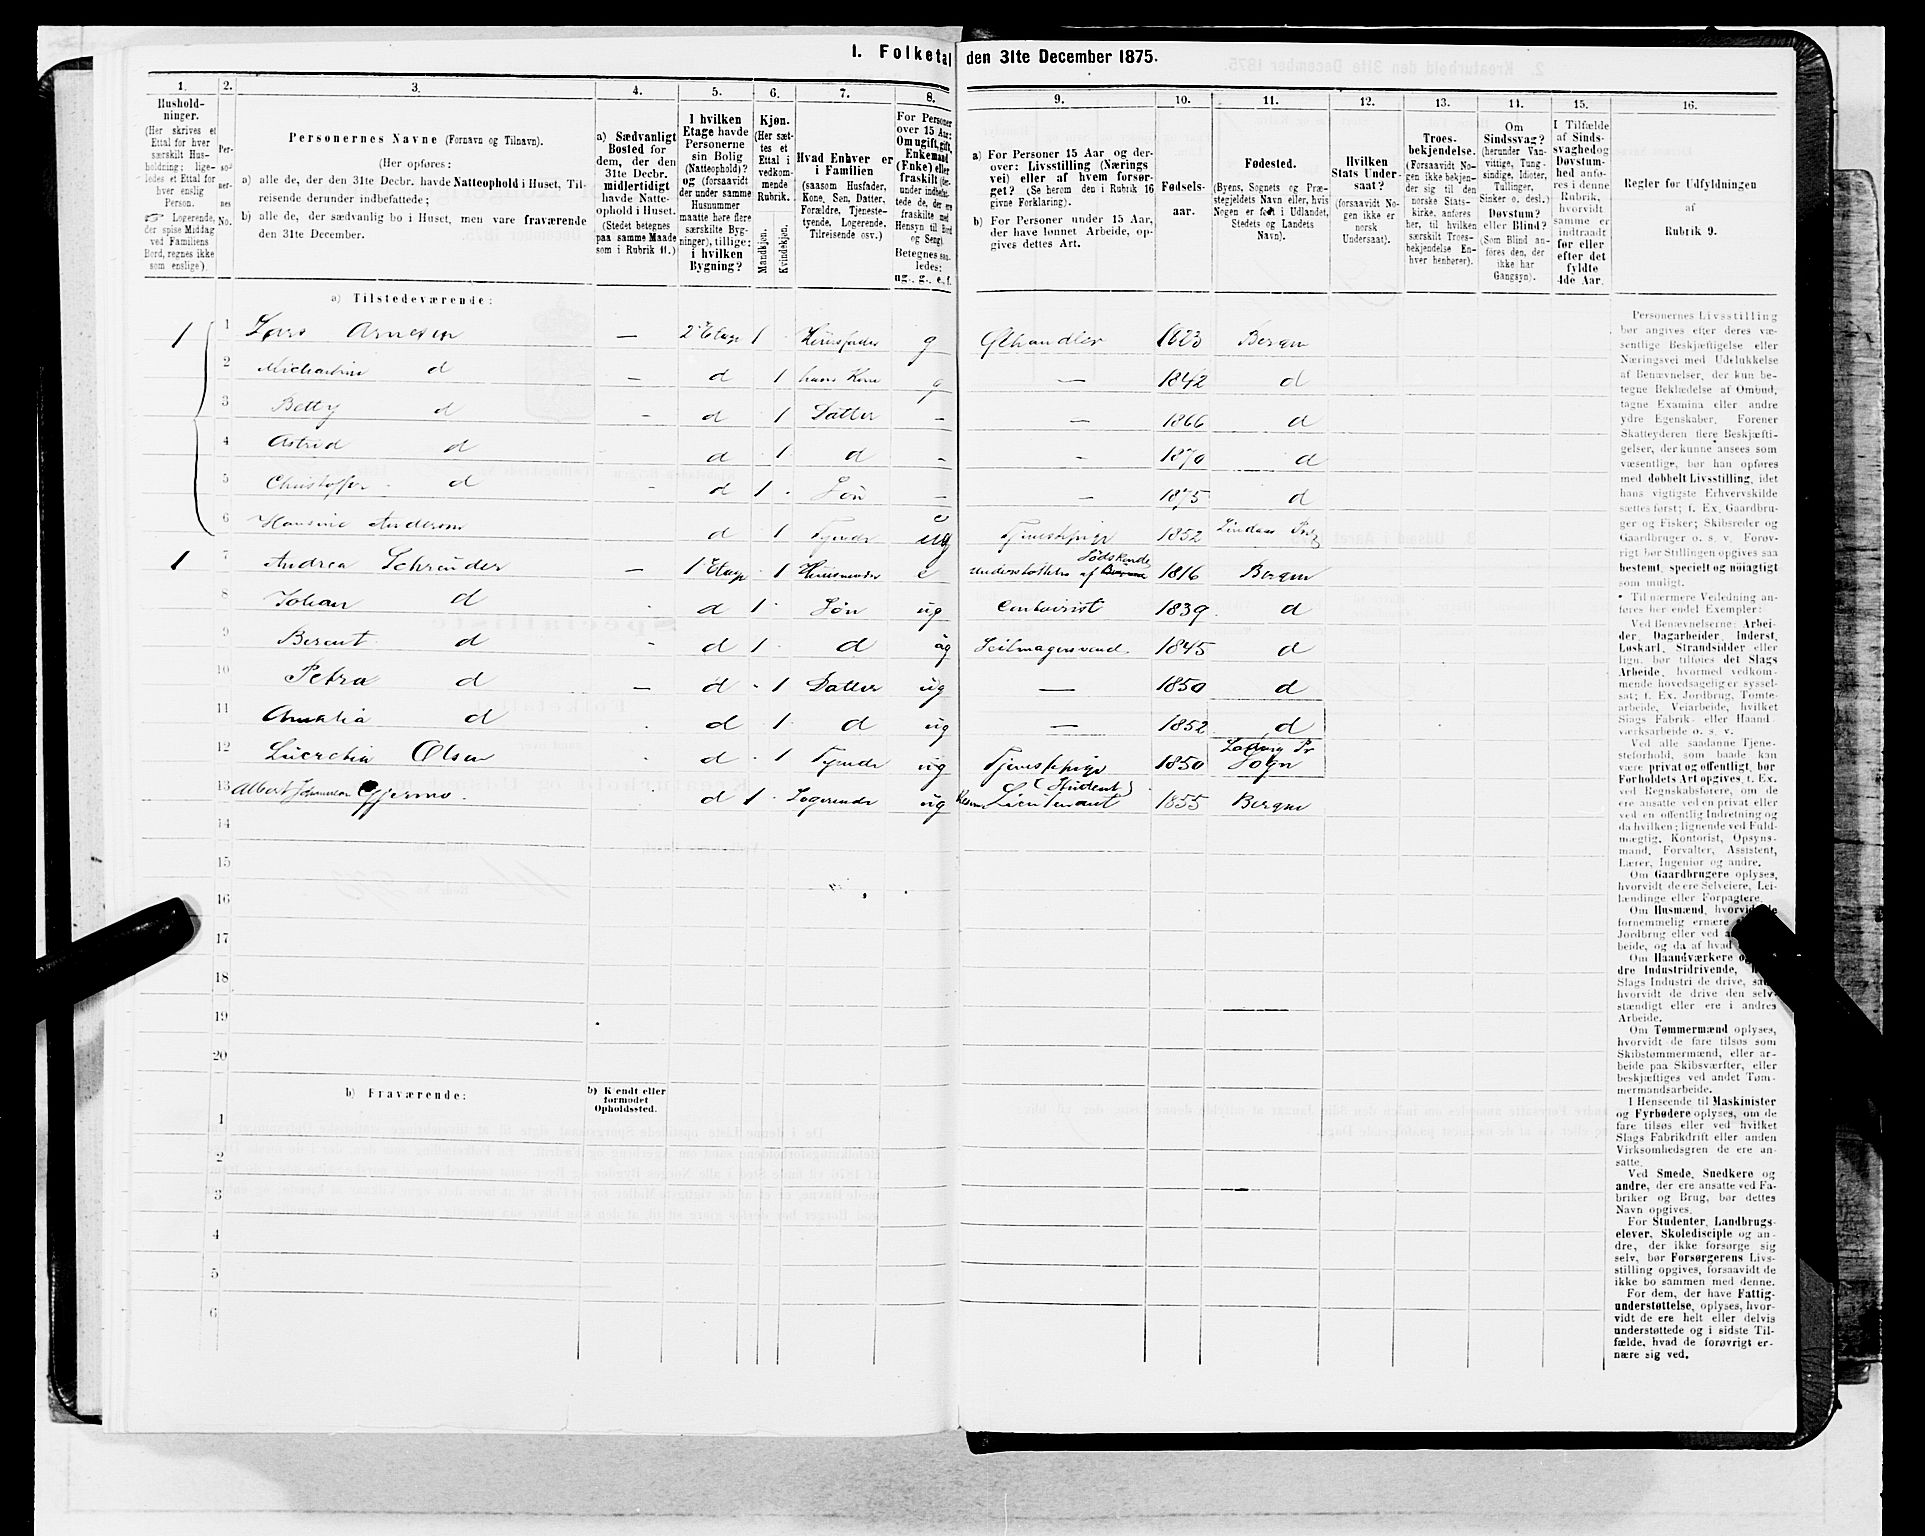 1. Folketal den 31te December 1875.
1. 2. 3. 4. 5. 6. 7. 8. 9. 10. 11. 12. 13. 14. 15. 16.
Hushold-
ninger.
(Her skrives et
Ettal for hver
særskilt Hus-
holdning; lige-
ledes et Ettal for
hver enslig
Person.
Logerende,
der spise Middag
ved Familiens
Bord, regnes ikke
som enslige).
Per-
so-
ner-
nes
No.
Personernes Navne (Fornavn og Tilnavn).
(Her opføres:
a) alle de, der den 31te Decbr. havde Natteophold i Huset, Til-
reisende derunder indbefattede;
b) alle de, der sædvanlig bo i Huset, men vare fraværende
den 31te December.
a) Sædvanligt
Bosted for
dem, der den
31te Decbr.
midlertidigt
havde Natte-
ophold i Huset.
(Stedet betegnes
paa samme Maade
som i Rubrik 11.)
I hvilken
Etage havde
Personerne
sin Bolig
(Natteophold)?
og (forsaavidt
der under samme
Husnummer
maatte høre flere
særskilte Byg-
ninger), tillige:
i hvilken
Bygning?
Kjøn.
(Her sæt-
tes et
Ettal i
vedkom-
mende
Rubrik.
Mandkjøn.
Kvindekjøn.
Hvad Enhver er
i Familien
(saasom Husfader,
Kone, Søn, Datter,
Forældre, Tjeneste-
tyende, Logerende,
Tilreisende osv.)
For Personer
over 15 Aar:
Om ugift, gift,
Enkemand
(Enke) eller
fraskilt
Betegnes saa-
ledes:
ug., g., e., f.
a) For Personer 15 Aar og der-
over: Livsstilling (Nærings-
vei) eller af hvem forsør-
get? (Se herom den i Rubrik 16
givne Forklaring).
b) For Personer under 15 Aar,
der have lønnet Arbeide, op-
gives dettes Art.
Fødsels-
aar.
Fødested.
(Byens, Sognets og Præ-
stegjeldets Navn eller, hvis
Nogen er født i Udlandet,
Stedets og Landets
Navn).
Hvilken
Stats Under-
saat?
(forsaavidt No-
gen ikke er
norsk
Undersaat).
Troes-
bekjendelse.
(Forsaavidt No-
gen ikke bekjen-
der sig til den
norske Stats-
kirke, anføres
her, til hvilken
særskilt Troes-
bekjendelse En-
hver henhører).
Om
Sindssvag?
(herunder Van-
vittige, Tung-
sindige, Idioter,
Tullinger,
Sinker o. desl.)
Døvstum?
eller Blind?
(Som Blind an-
føres den, der
ikke har
Gangsyn).
I Tilfælde
af Sinds-
svaghed og
Døvstum-
hed anfø-
res i denne
Rubrik,
hvorvidt
samme er
indtraadt
før eller
efter det
fyldte
4de Aar.
Regler for Udfyldningen
af
Rubrik 9.
a) Tilstedeværende:
1 1 Lars Arnesen — 2 Etage 1 Huusfader g 1833 Bergen
2 d — d 1 hans Kone g — 1842 d
3 Betty d — d 1 Datter — — 1866 d
4 Astrid d d 1 d — — 1870 d
5 Christoffer d - d 1 Søn — — 1875 d
6 Hansine Andersen d 1 Tyende ug Tjenestepige 1852 Lindaas Prg
1 7 Andrea Schrøuder — 1 Etage 1 Huusmoder e understøttes af Sødskende 1816 Bergen
8 Johan d d 1 Søn ug Contoirist 1839 d
9 Berent d d 1 d ug Seilmagersvend 1845 d
10 Petra d — d 1 Datter ug — 1850 d
11 Amalia d d 1 d ug — 1852 d
12 Lucretia Olsen d 1 Tyende ug Tjenestepige 1850 Ladvig Pr Sogn
13 Albert Gjermo d 1 Logerende ug Lieutenant (Student) 1855 Bergen
14
15
16
17
18
19
20
b) Fraværende:
b) Kjendt eller
formodet
Opholdssted.
1
2
3
4
5
6
Personernes Livsstilling
bør angives efter deres væ-
sentlige Beskjæftigelse eller
Næringsvei med Udelukkelse
af Benævnelser, der kun be-
tegne Beklædelse af Ombud,
tagne Examina eller andre
ydre Egenskaber. Forener
Skatteyderen flere Beskjæfti-
gelser, der kunne ansees som
væsentlige, bør han opføres
med dobbelt Livsstilling, idet
hans vigtigste Erhvervskilde
sættes først; f. Ex. Gaardbru-
ger og Fisker; Skibsreder og
Gaardbruger o. s. v. Forøv-
rigt bør Stillingen opgives saa
bestemt, specielt og nøiagtigt
som muligt.
Til nærmere Veiledning an-
føres her endel Exempler:
Ved Benævnelserne: Arbei-
der, Dagarbeider, Inderst,
Løskarl, Strandsidder eller
lign. bør tilføies det Slags
Arbeide, hvormed vedkom-
mende hovedsagelig er syssel-
sat; f. Ex. Jordbrug, Tomte-
arbeide, Veiarbeide, hvilket
Slags Fabrik- eller Haand-
værksarbeide o. s. v.
Ved alle saadanne Tjene-
steforhold, som baade kan
være privat og offentligt, bør
Forholdets Art opgives, f. Ex.
ved Regnskabsførere, om de
ere ansatte ved en privat eller
ved en offentlig Indretning og
da hvilken; lignende ved Fuld-
mægtig, Kontorist, Opsyns-
mand, Forvalter, Assistent,
Lærer, Ingeniør og andre.
Om Gaardbrugere oplyses,
hvorvidt de ere Selveiere, Lei-
lændinge eller Forpagtere.
Om Husmænd, hvorvidt de
fornemmelig ernære
Jordbrug eller ved
beide, og da af hvad
Om Haandværkere
dre Industridrivende,
Slags Industri de drive, samt
hvorvidt de drive den selv-
stændigt eller ere i andres
Arbeide.
Om Tømmermænd oplyses,
hvorvidt de fare tilsøs som
Skibstømmermænd, eller ar-
beide paa Skibsværfter, eller
beskjæftiges ved andet Tøm-
mermandsarbeide.
I Henseende til Maskinister
og Fyrbødere oplyses, om de
fare tilsøs eller ved hvilket
Slags Fabrikdrift eller anden
Virksomhedsgren de ere an-
satte.
Ved Smede, Snedkere og
andre, der ere ansatte ved Fa-
briker og Brug, bør dettes
Navn opgives.
For Studenter, Landbrugs-
elever, Skoledisciple og an-
dre, der ikke forsørge sig
selv, bør Forsørgerens Livs-
stilling opgives, forsaavidt de
ikke bo sammen med denne.
For dem, der have Fattig-
understøttelse, oplyses, hvor-
vidt de ere helt eller delvis
understøttede og i sidste Til-
fælde, hvad de forøvrigt er-
nære sig ved.